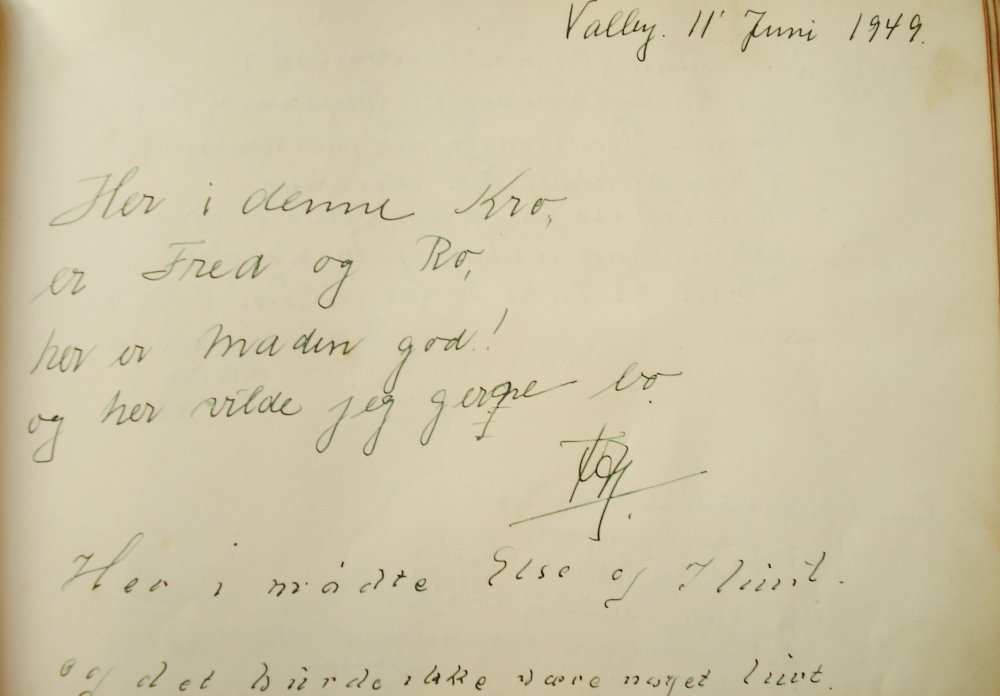 Valby. 11' Juni 1949.
Her i denne Kro,
er Fred og Ro,
her er maden god!
og her vilde jeg gerne bo.
Her i mødte Else og
og det burde ikke være noget